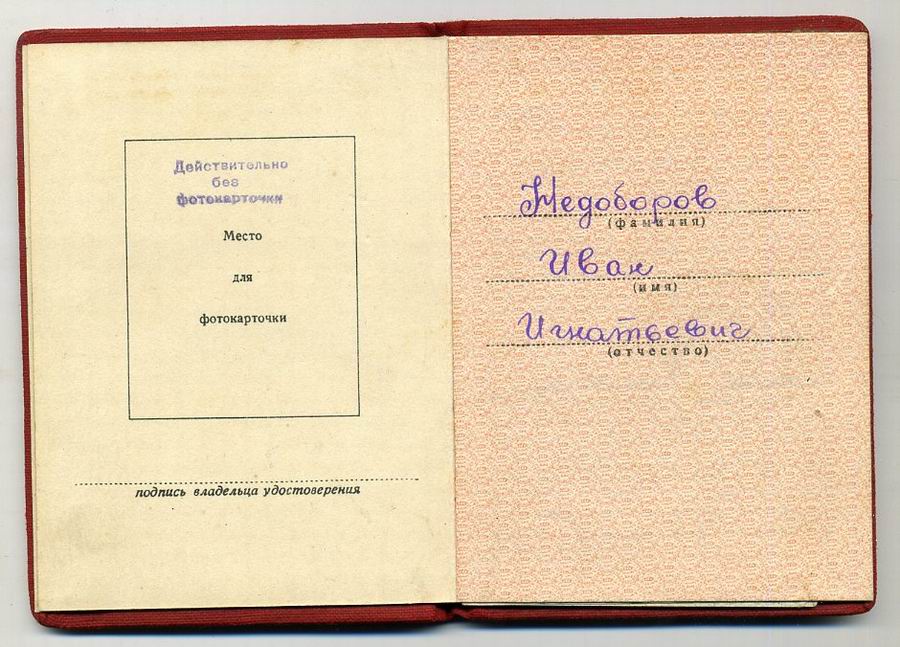 Действительно
без
фотокарточки
Место
для
фотокарточки
подпись владельца удостоверения
Недоборов
(фамилия)
Иван
(имя)
Игнатьевич
(отчество)